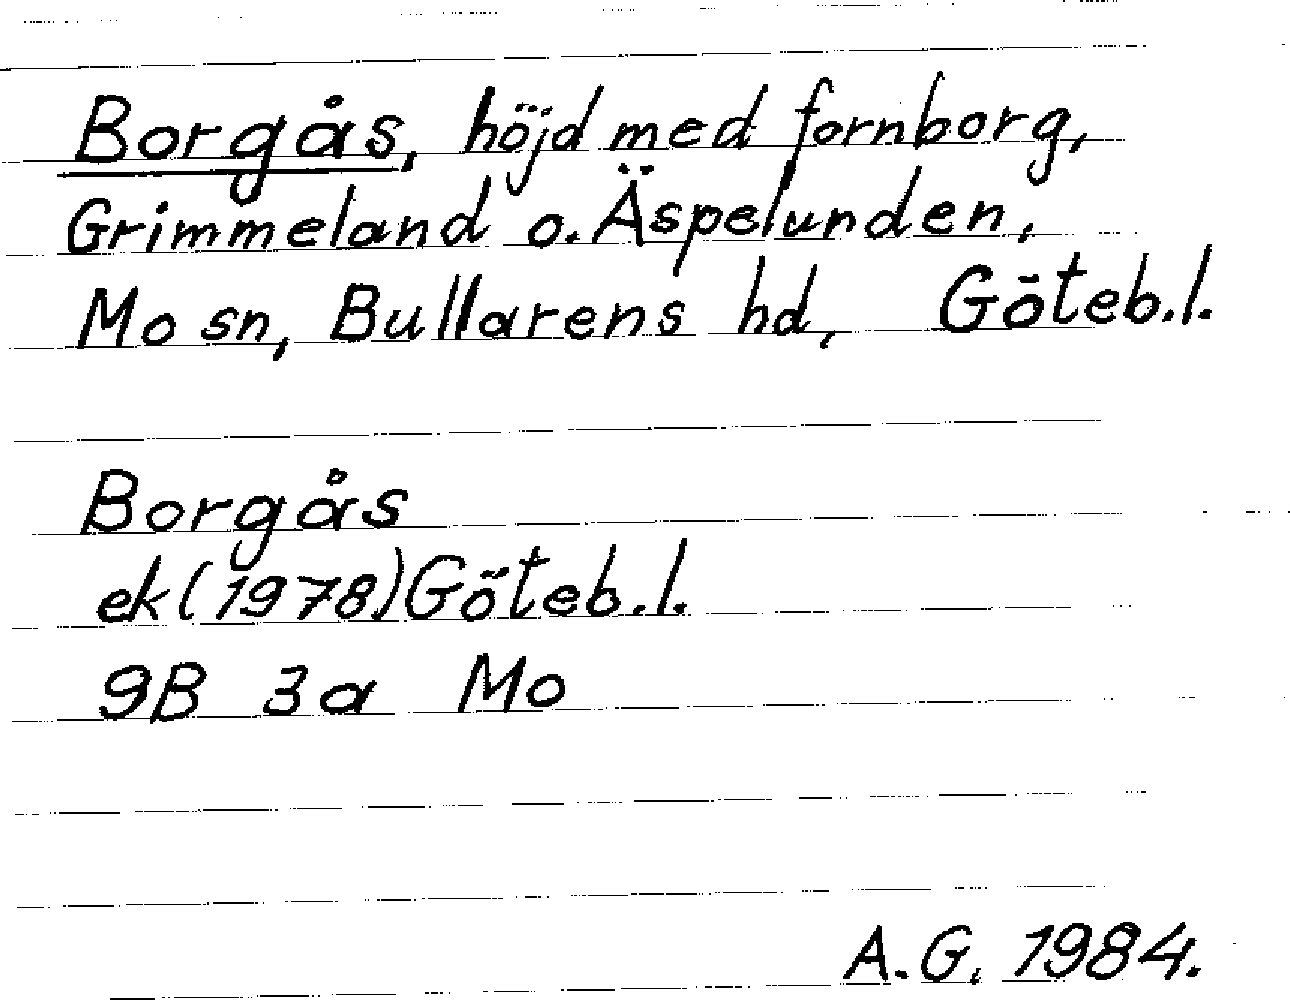 Borgås, höjd med fornborg,
Grimmeland o. Äspelunden,
Mo sn, Bullarens hd, Göteb.l.
Borgås
ek(1978)Göteb.l.
9B 3a Mo
A.G. 1984.